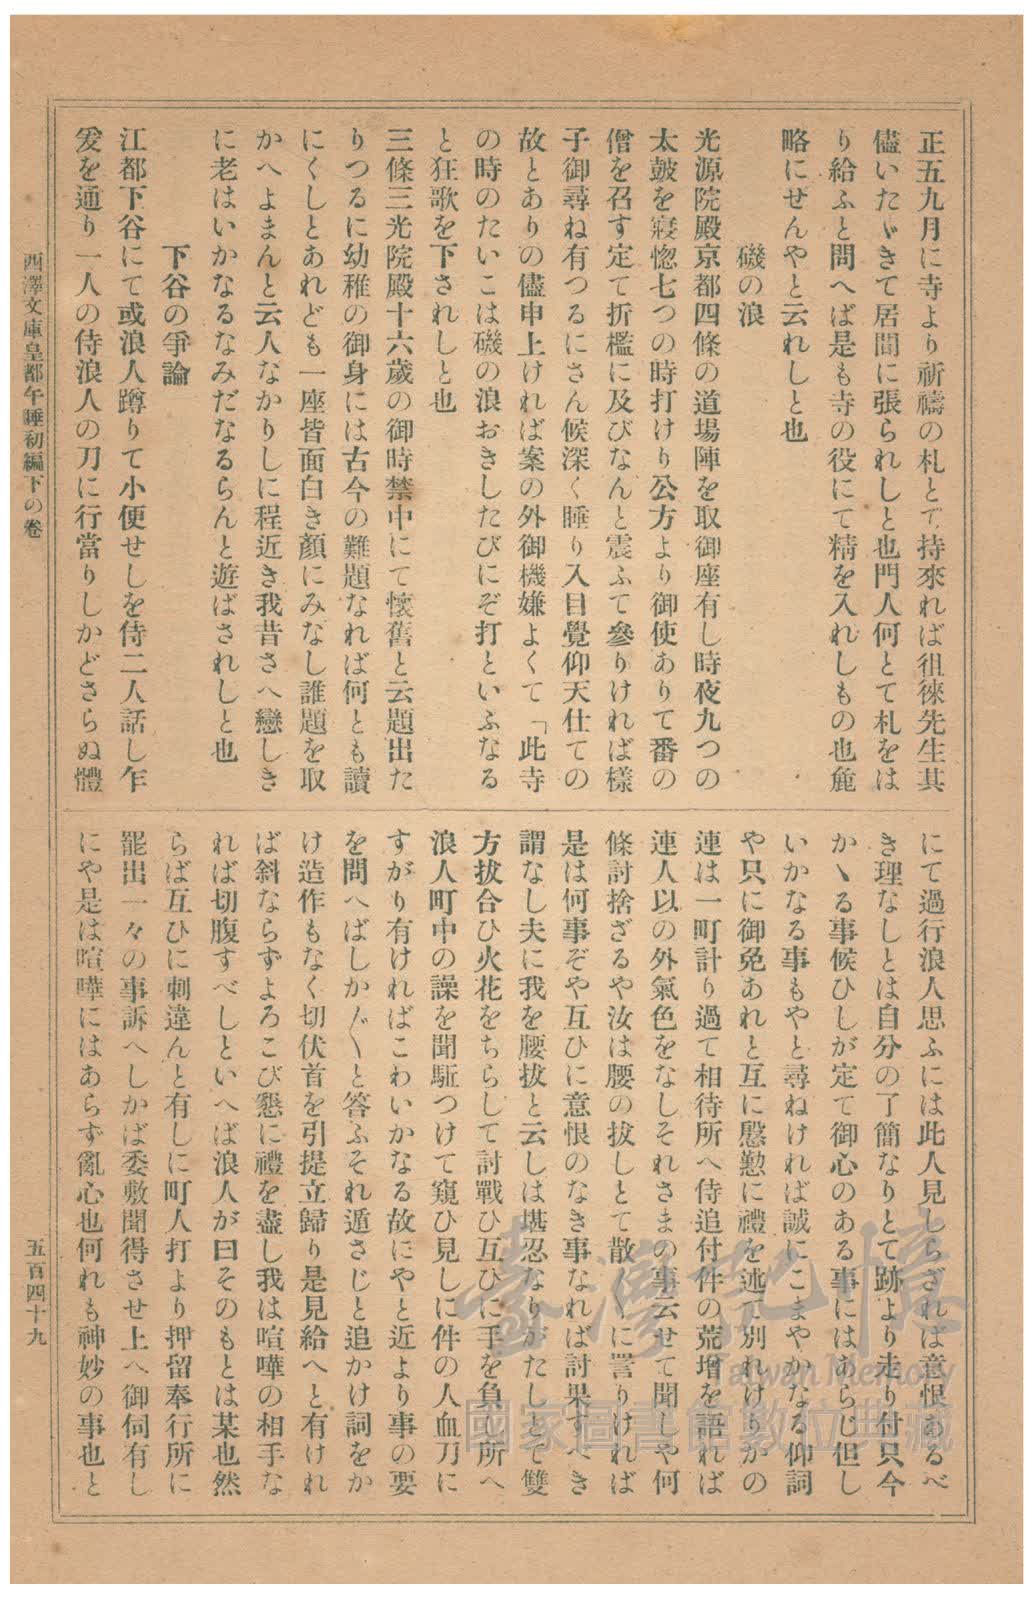 正五九月に寺より祈禱の札とて持來れば徂徠先生其
儘いたゞきて居間に張られしと也門人何とて札をは
り給ふと問へば是も寺の役にて精を入れしもの也麁
略にせんやと云れしと也
磯の浪
光源院殿京都四條の道場陣を取御座有し時夜九つの
太皷を寢惚七つの時打けり公方より御使ありて番の
僧を召す定て折檻に及びなんと震ふて參りければ樣
子御尋ね有つるにさん候深く睡り入目覺仰天仕ての
故とありの儘申上ければ案の外御機嫌よくて「此寺
の時のたいこは磯の浪おきしたびにぞ打といふなる
と狂歌を下されしと也
三條三光院殿十六歲の御時禁中にて懷舊と云題出た
りつるに幼稚の御身には古今の難題なれば何とも讀
にくしとあれども一座皆面白き顏にみなし誰題を取
かへよまんと云人なかりしに程近き我昔さへ戀しき
に老はいかなるなみだなるらんと遊ばされしと也
下谷の爭論
江都下谷にて或浪人蹲りて小便せしを侍二人話し乍
爰を通り一人の侍浪人の刀に行當りしかどさらぬ體
にて過行浪人思ふには此人見しらざれは意恨あるべ
き理なしとは自分の了簡なりとて跡より走り付只今
かゝる事候ひしが定て御心のある事にはあらじ但し
いかなる事もやと尋ねければ誠にこまやかなる仰詞
や只に御免あれと互に慇懃に禮を述て別れけりかの
連は一町計り過て相待所へ侍追付件の荒增を語れば
連人以の外氣色をなしそれさまの事云せて聞しや何
條討捨ざるや汝は腰の拔しとて散〱に詈りければ
是は何事ぞや互ひに意恨のなき事なれば討果すべき
謂なし夫に我を腰拔と云しは堪忍なりがたしとて雙
方拔合ひ火花をちらして討戰ひ互ひに手を負し所へ
浪人町中の譟を聞駈つけて窺ひ見しに件の人血刀に
すがり有ければこわいかなる故にやと近より事の要
を問へばしか〲と答ふそれ遁さじと追かけ詞をか
け造作もなく切伏首を引提立歸り是見給へと有けれ
ば斜ならずよろこび懇に禮を盡し我は喧嘩の相手な
れば切腹すべしといへば浪人が曰そのもとは某也然
らば互ひに刺違んと有しに町人打より押留奉行所に
罷出一々の事訴へしかば委敷聞得させ上へ御伺有し
にや是は喧嘩にはあらず亂心也何れも神妙の事也と
西澤文庫皇都午睡初編下の卷
五百四十九
臺灣記憶
Taiwan Memory
國家圖書館數位典藏